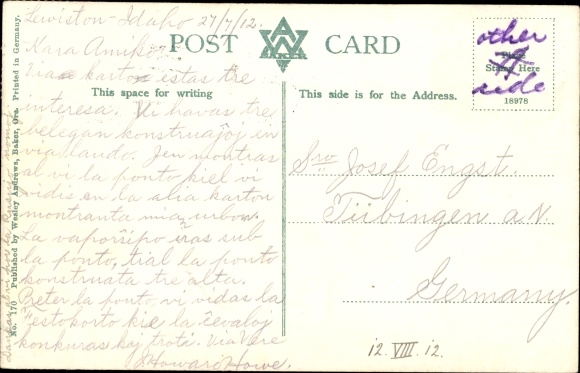 Lewiston - Idaho 27/7/12.
Kara Amiko: -
Via karto estas tre
interesa. Vi havas tre
belegan konstruaĵoj en
via lando. Jen montras
al vi la ponto kiel vi
vidis en la alia karton
montranta mia urbon.
La vaporŝipo iras sub
la ponto, tial la ponto
konstruata tre alta.
Preter la ponto, vi vidas la
kie la ĉevaloj
konkuras kaj troti. Via Vere
Howard Howe.
POST CARD
This space for writing
This side is for the Address.
Place
Stamp Here
18978
other
side
Sro Josef Engst.
Tübingen a. N.
Germany.
12. VIII. 12.
No. 170 Published by Wesley Andrews, Baker, Ore. Printed in Germany.